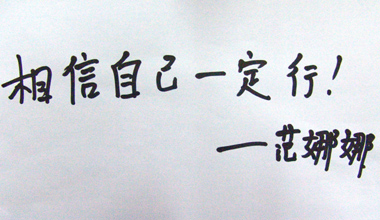 相信自己一定行！
—范娜娜